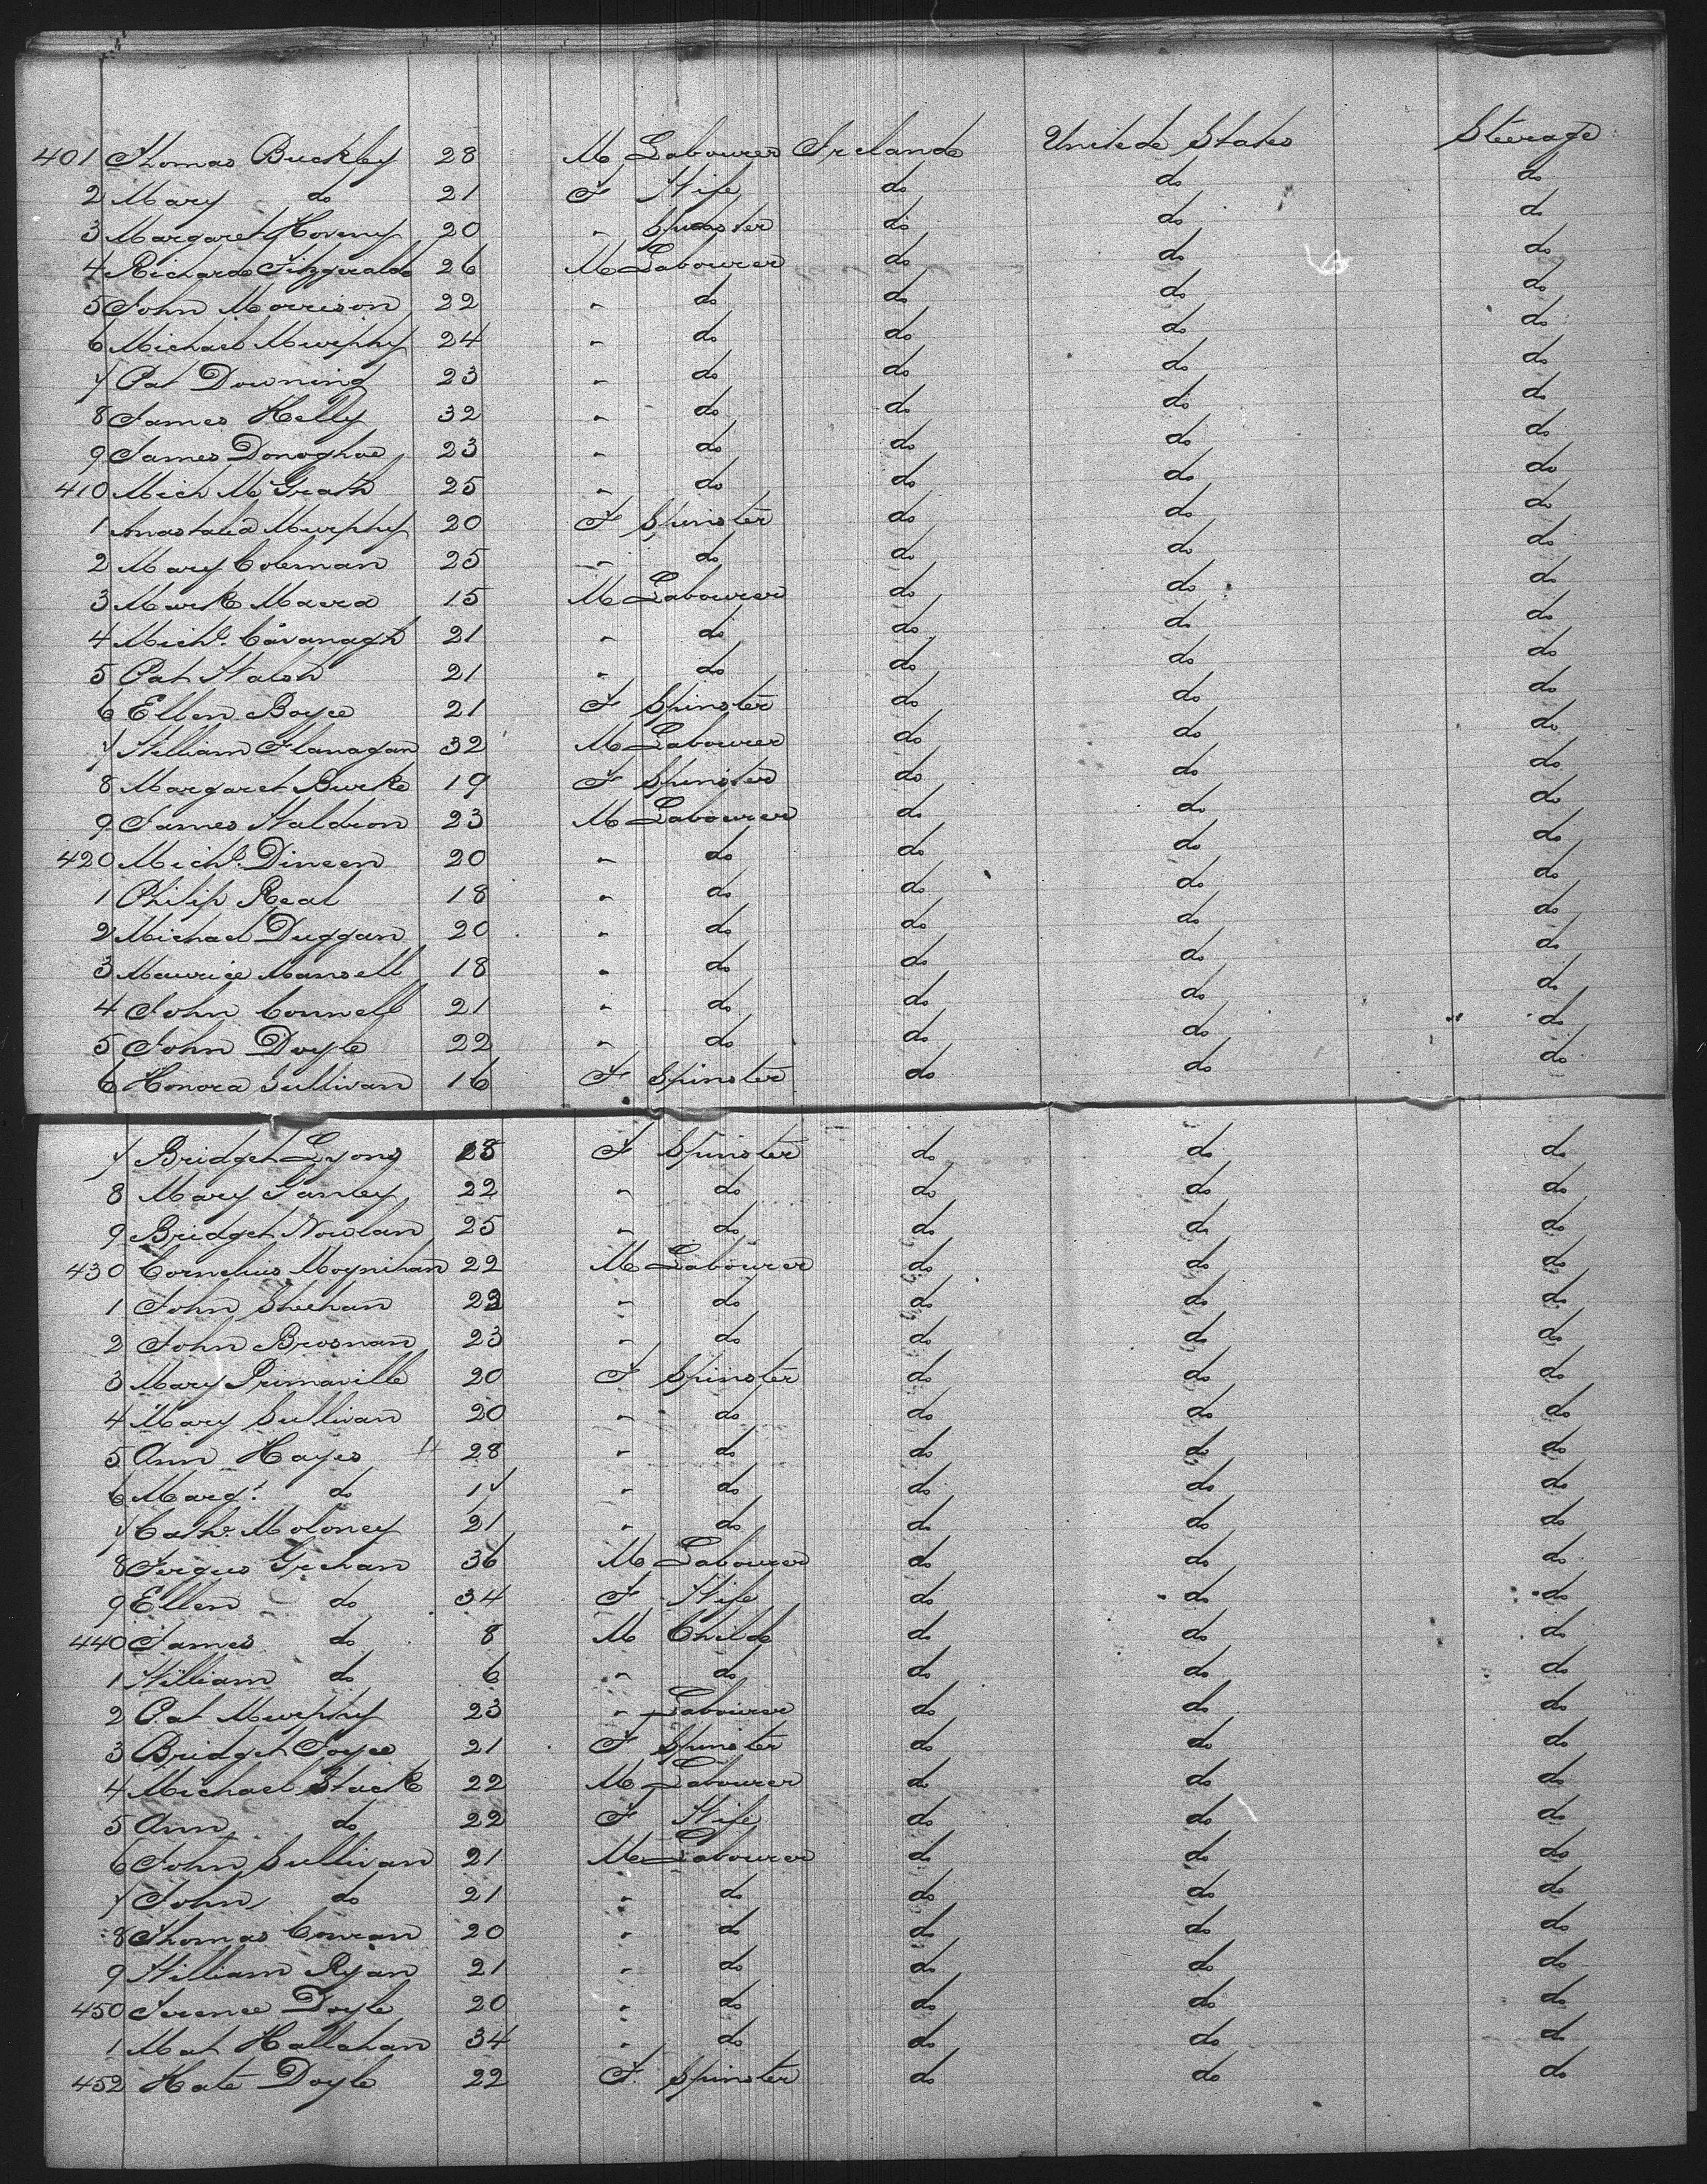 401 Thomas Buckley 28 M Labourer Ireland United States Steerage
2 Mary do 21 F Wife do do do
3 Margaret Hoveny 20 " Spinster do do do
4 Richard Fitzgerald 26 M Labourer do do do
5 John Morrison 22 " do do do do
6 Michael Murphy 24 " do do do do
7 Pat Downing 23 " do do do do
8 James Kelly 32 " do do do do
9 James Donoghoe 23 " do do do do
410 Mich McGrath 25 " do do do do
1 Anastatia Murphy 20 F Spinster do do do
2 Mary Coleman 25 " do do do do
3 Mark Maera 15 M Labourer do do do
4 Michl. Cavanagh 21 " do do do do
5 Pat Walsh 21 " do do do do
6 Ellen Boyce 21 F Spinster do do do
7 William Flanagan 32 M Labourer do do do
8 Margaret Burke 19 F Spinster do do do
9 James Waldron 23 M Labourer do do do
420 Michl. Dineen 20 " do do do do
1 Philip Real 18 " do do do do
2 Michael Duggan 20 " do do do do
3 Maurice Mansell 18 " do do do do
4 John Connell 21 " do do do do
5 John Doyle 22 " do do do do
6 Honora Sullivan 16 F Spinster do do do
7 Bridget Lyons 25 F Spinster do do do
8 Mary Ganley 22 " do do do do
9 Bridget Nowlan 25 " do do do do
430 Cornelius Moynihan 22 M Labourer do do do
1 John Sheehan 23 " do do do do
2 John Brosnan 23 " do do do do
3 Mary Primaville 20 F Spinster do do do
4 Mary Sullivan 20 " do do do do
5 Ann Hayes 28 " do do do do
6 Margt. do 17 " do do do do
7 Cathe. Moloney 21 " do do do do
8 Fergus Grehan 36 M Labourer do do do
9 Ellen do 34 F Wife do do do
440 James do 8 M Child do do do
1 William do 6 " do do do do
2 Pat Murphy 23 " Labourer do do do
3 Bridget Joyce 21 F Spinster do do do
4 Michael Stack 22 M Labourer do do do
5 Ann do 22 F Wife do do do
6 John Sullivan 21 M Labourer do do do
7 John do 21 " do do do do
8 Thomas Conran 20 " do do do do
9 William Ryan 21 " do do do do
450 Terence Doyle 20 " do do do do
1 Mat Hallahan 34 " do do do do
452 Kate Doyle 22 F Spinster do do do